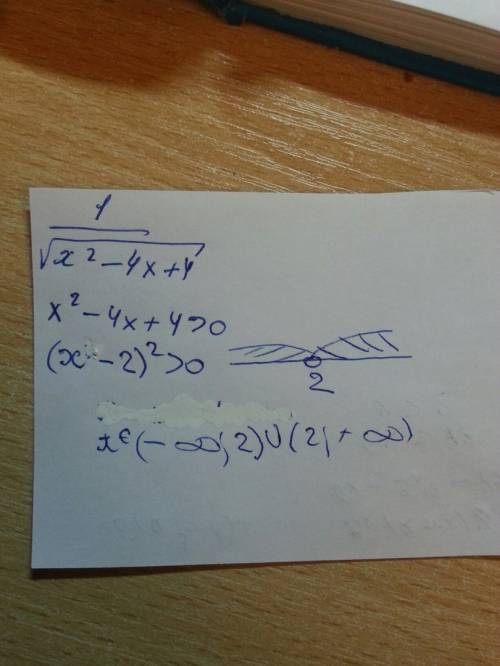 1
√x² - 4x + 4
x² - 4x + 4 > 0
(x - 2)² > 0
2
x ∈ (- ∞; 2) ∪ (2; + ∞)